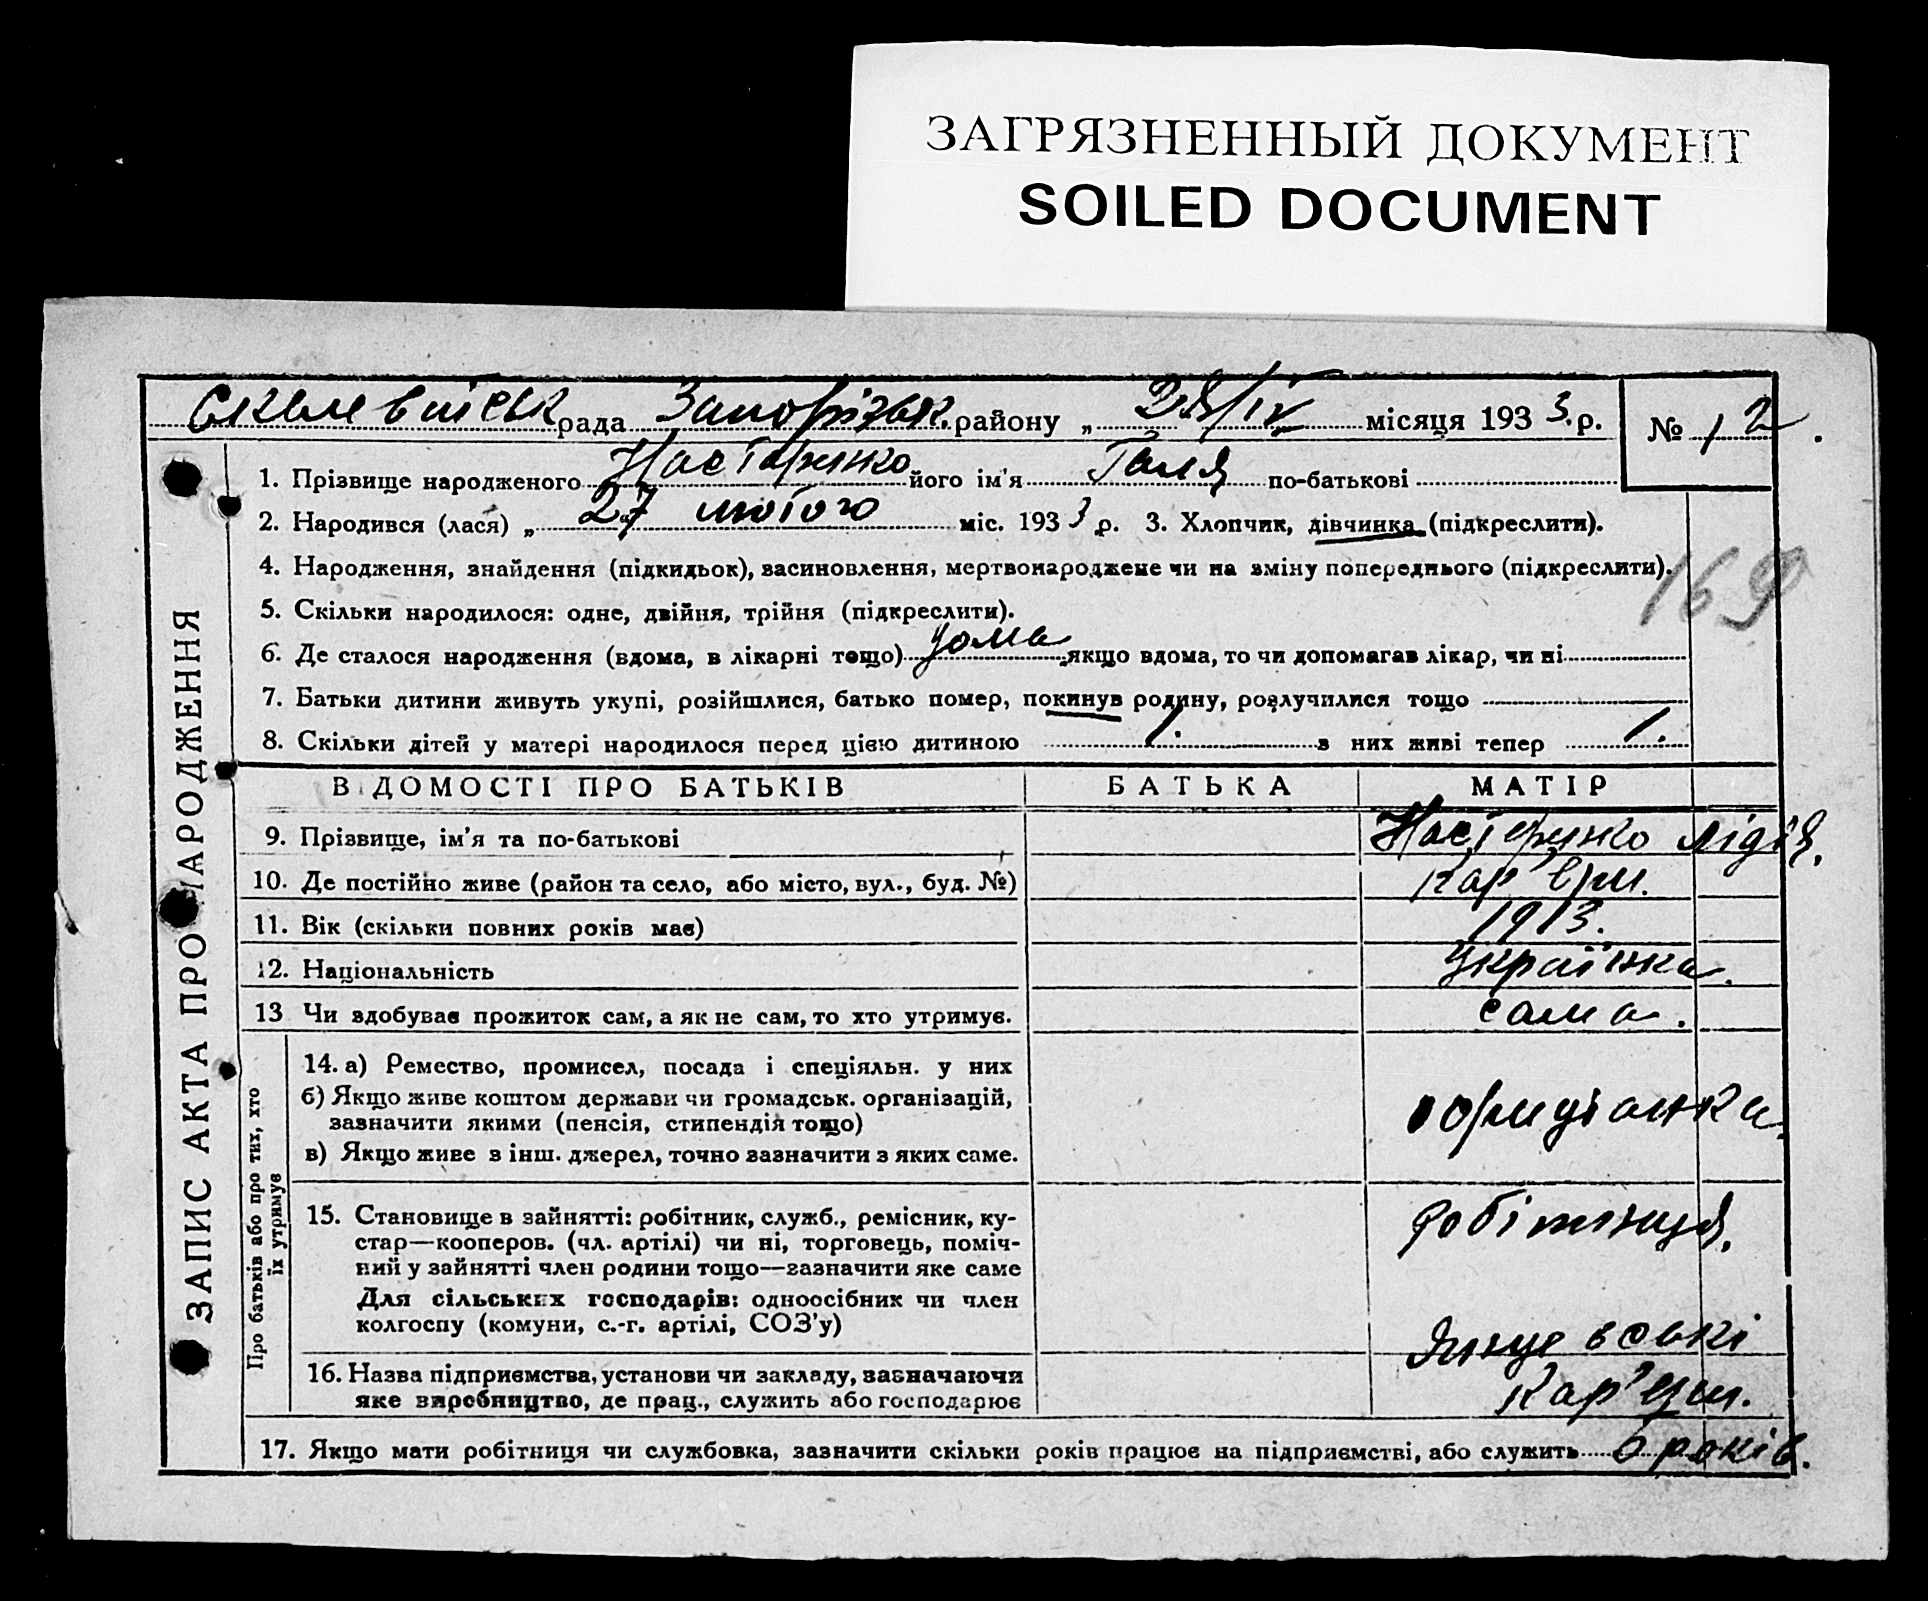 ЗАГРЯЗНЕННЫЙ ДОКУМЕНТ
SOILED DOCUMENT
рада Запорізьк. району „ 28/IV місяця 1933 р. № 12.
1. Прізвище народженого Настеренко його ім'я Галя по-батькові
2. Народився (лася) „ 27 лютого міс. 1933 р. 3. Хлопчик, дівчинка (підкреслити).
4. Народження, знайдення (підкидьок), васиновлення, мертвонароджене чи на зміну попереднього (підкреслити).
169
5. Скільки народилося: одне, двійня, трійня (підкреслити).
6. Де сталося народження (вдома, в лікарні тощо) дома якщо вдома, то чи допомагав лікар, чи ні
7. Батьки дитини живуть укупі, розійшлися, батько помер, покинув родину, розлучилися тощо
8. Скільки дітей у матері народилося перед цією дитиною 1. з них живі тепер 1.
ВІДОМОСТІ ПРО БАТЬКІВ БАТЬКА МАТІР
9. Прізвище, ім'я та по-батькові Настеренко Лідія.
10. Де постійно живе (район та село, або місто, вул., буд. №)
11. Вік (скільки повних років має) 1913.
12. Національність Українка.
13 Чи здобуває прожиток сам, а як не сам, то хто утримує. сама.
14. а) Ремество, промисел, посада і спеціяльн. у них
б) Якщо живе коштом держави чи громадськ. організацій,
зазначити якими (пенсія, стипендія тощо)
в) Якщо живе з інш. джерел, точно зазначити з яких саме.
15. Становище в зайнятті: робітник, служб., ремісник, ку-
стар—кооперов. (чл. артілі) чи ні, торговець, поміч-
ний у зайнятті член родини тощо—зазначити яке саме
Для сільських господарів: одноосібник чи член
колгоспу (комуни, с.-г. артілі, СОЗ'у)
робітниця.
16. Назва підприємства, установи чи закладу, зазначаючи
яке виробництво, де прац., служить або господарює
Кар'єри.
17. Якщо мати робітниця чи службовка, зазначити скільки років працює на підприємстві, або служить 6 років.
ЗАПИС АКТА ПРО НАРОДЖЕННЯ
Про батьків або про тих, хто
їх утримує